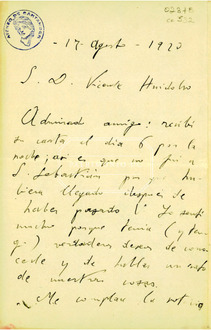 02378
- 17 - Agosto - 1920
S. D. Vicente Huidobro
Admirado amigo: recibí
su carta el día 6 por la
noche; así es que no fui a
S. Sebastián porque hu-
biera llegado después de
haber pasado Lo sentí
mucho porque tenía (y ten-
go) verdaderos deseos de cono-
cerle y de hablar un rato
de nuestras cosas.
Me complace la noticia